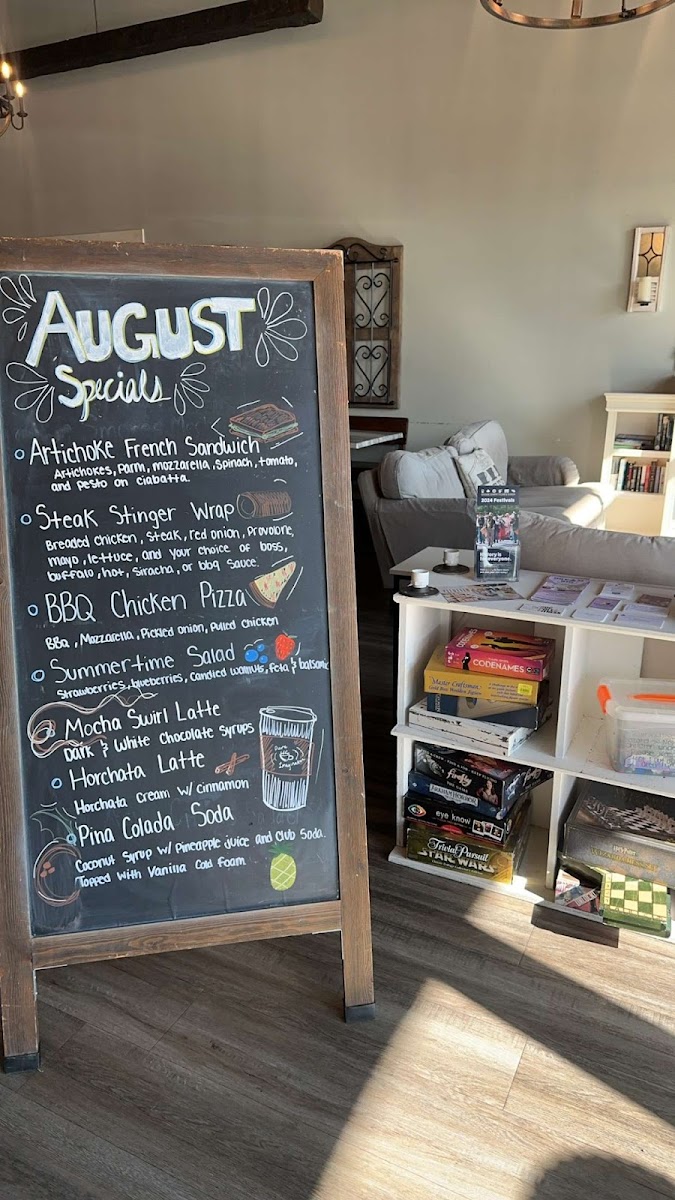 AUGUST
Specials
Artichoke French Sandwich
Artichokes, Parm, mozzarella, Spinach, tomato,
and pesto on ciabatta.
Steak Stinger Wrap
Breaded chicken, steak, red onion, Provolone,
mayo, lettuce, and your choice of boss,
buffalo, hot, Siracha, or bbq Sauce.
BBQ Chicken Pizza
BBQ, Mozzarella, Pickled onion, Pulled Chicken
Summer-time Salad
Strawberries, blueberries, Candied Walnuts, Feta & balsamic
Mocha Swirl Latte
Dark & White Chocolate Syrups
Horchata Latte
Horchata Cream w/ Cinnamon
Pina Colada Soda
Coconut Syrup w/ Pineapple Juice and Club Soda.
Topped with Vanilla Cold Foam
2024 Festivals
CODENAMES
Master Craftsman
firefly
ARKHAM HORROR
eye know
Trivial Pursuit
STAR WARS